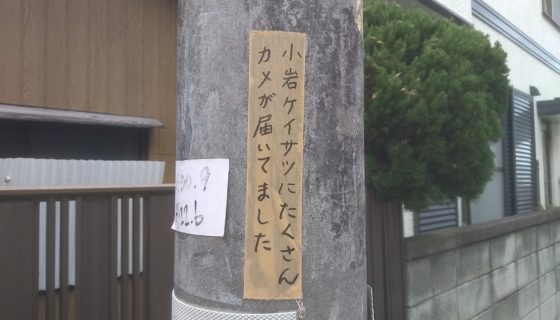 小岩ケイサツにたくさん
カメが届いてました
30.9
22.6